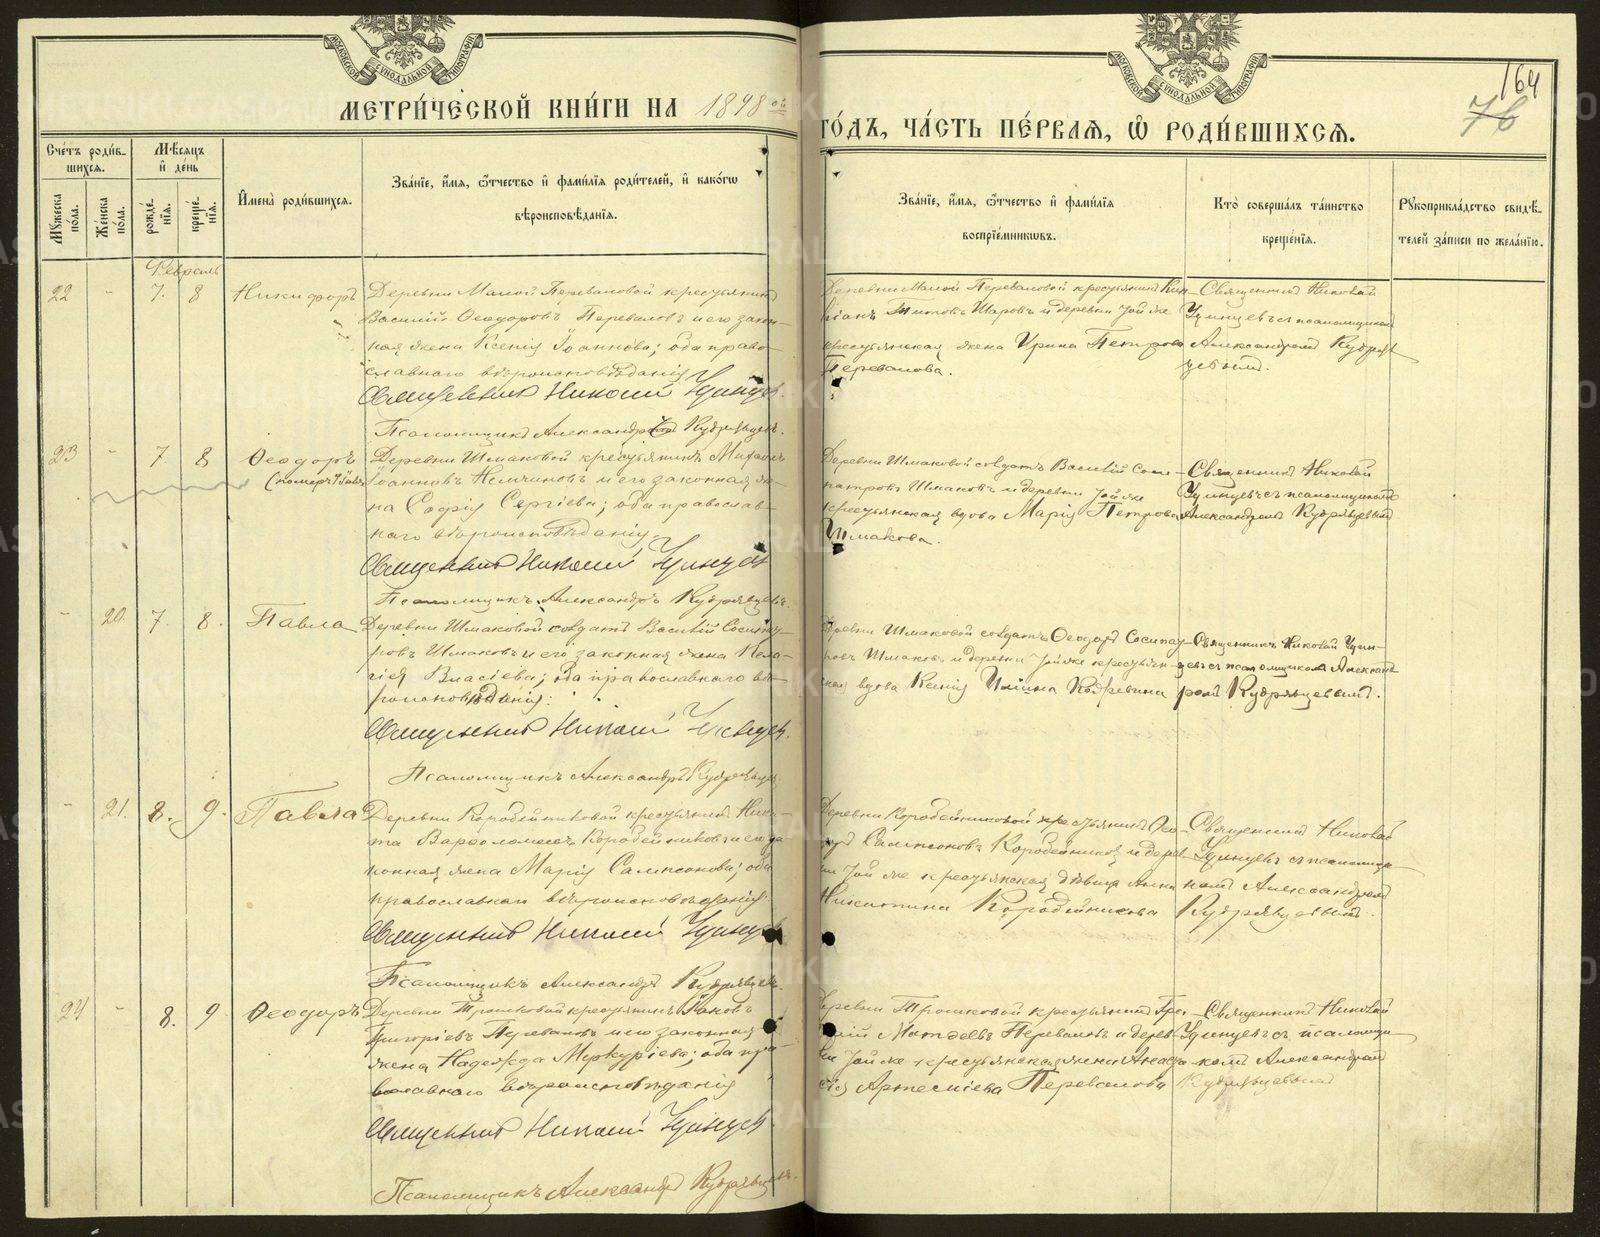 МОСКОВСКОЙ СѴНОДАЛЬНОЙ ТИПОГРАФІИ
МОСКОВСКОЙ СѴНОДАЛЬНОЙ ТИПОГРАФІИ
164
76
МЕТРИ́ЧЕСКОЙ КНИ́ГИ НА 1898 ой
ГО́ДЪ, ЧА́СТЬ ПЕ́РВАѦ, Ѽ РОДИ́ВШИХСѦ.
Сче́тъ роди́в-
шихсѧ.
Мѣ́сѧцъ
и̂ де́нь
Мꙋжеска по́ла.
Же́нска по́ла.
рожде́-
нїѧ.
креще́-
нїѧ.
И̂мена̀ роди́вшихсѧ.
Зва́нїе, и̂́мѧ, ѿ́тчество и̂ фами́лїѧ роди́телей, и̂ како́гѡ
вѣроисповѣ́данїѧ.
Зва́нїе, и̂́мѧ, ѿ́тчество и̂ фами́лїѧ
воспрїе́мникѡвъ.
Кто̀ соверша́лъ та́инство
креще́нїѧ.
Рꙋкоприкла́дство свидѣ́-
телей за́писи по жела́нїю.
Февраль
22 - 7. 8 Никифоръ
Деревни Малой Переваловой крестьянинъ
Василій Ѳеодоровъ Переваловъ и его закон-
ная жена Ксенія Іоаннова; оба право-
славнаго вѣроисповѣданія
Священникъ Николай Удинцевъ.
Псаломщикъ Александръ Кудрявцевъ.
Деревни Малой Переваловой крестьянинъ Кип-
ріанъ Титовъ Шаровъ и деревни той же
крестьянская жена Ирина Петрова
Перевалова.
Священникъ Николай
Удинцевъ съ псаломщикомъ
Александромъ Кудряв-
цевымъ.
23 - 7. 8 Ѳеодоръ
Деревни Шмаковой крестьянинъ Михаилъ
Іоанновъ Немчиновъ и его законная же-
на Софія Сергіева; оба православ-
наго вѣроисповѣданія.
Священникъ Николай Удинцевъ
Псаломщикъ Александръ Кудрявцевъ.
Деревни Шмаковой солдатъ Василій Соси-
патровъ Шмаковъ и деревни той же
крестьянская вдова Марія Петрова
Шмакова.
Священникъ Николай
Удинцевъ съ псаломщикомъ
Александромъ Кудрявцевымъ
- 20. 7. 8. Павла
Деревни Шмаковой солдатъ Василій Сосипат-
ровъ Шмаковъ и его законная жена Пела-
гія Власіева; оба православнаго вѣ-
роисповѣданія.
Священникъ Николай Удинцевъ.
Псаломщикъ Александръ Кудрявцевъ
Деревни Шмаковой солдатъ Ѳеодоръ Сосипат-
ровъ Шмаковъ и деревни той же крестьян-
ская вдова Ксенія Ильина
Священникъ Николай Удин-
цевъ съ псаломщикомъ Александ-
ромъ Кудрявцевымъ.
- 21. 8. 9. Павла
Деревни Коробейниковой крестьянинъ Ники-
та Варѳоломеевъ Коробейниковъ и его за-
конная жена Марія Сампсонова; оба
православнаго вѣроисповѣданія.
Священникъ Николай Удинцевъ
Псаломщикъ Александръ Кудрявцевъ.
Деревни Коробейниковой крестьянинъ Ѳео-
доръ Сампсоновъ Коробейниковъ и дерев-
ни той же крестьянская дѣвица Анна
Никитина Коробейникова
Священникъ Николай
Удинцевъ съ псаломщи-
комъ Александромъ
Кудрявцевымъ.
24 - 8. 9 Ѳеодоръ
Деревни Трошковой крестьянинъ Іаковъ
Григоріевъ Переваловъ и его законная
жена Надежда Меркуріева; оба пра-
вославнаго вѣроисповѣданія
Священникъ Николай Удинцевъ
Псаломщикъ Александръ Кудрявцевъ.
Деревни Трошковой крестьянинъ Гри-
горій Матѳеевъ Переваловъ и дерев-
ни той же крестьянская жена Анаста-
сія Артеміева Перевалова
Священникъ Николай
Удинцевъ съ псаломщи-
комъ Александромъ
Кудрявцевымъ